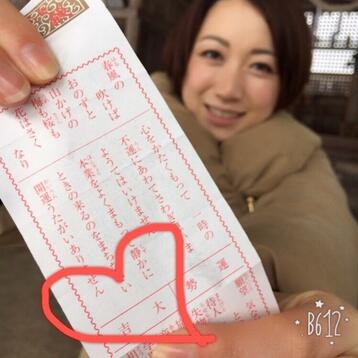 春風の
吹けば
おのずと
山かげの
梅も桜も
花はさく
なり
心をかたくもつて 一時の
不運にあわてさわぎま
ようてはいけません 静かに
本業を くまもり
ときの来るのをまち
開運うたがいありません
運勢 大吉
願望
待人
B612